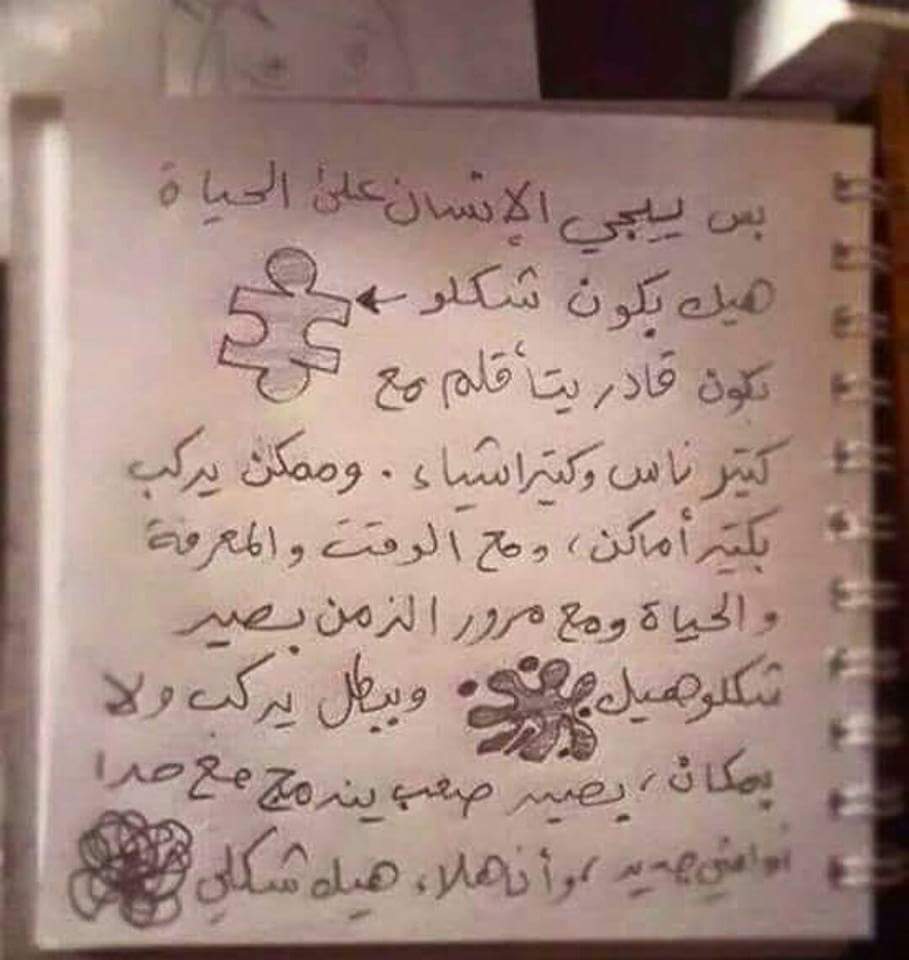 بس ييجي الإنسان على الحياة
هيك بكون شكلو
بكون قادر يتأقلم مع
كتير ناس وكتير اشياء . وممكن يركب
بكتير أماكن ، ومع الوقت والمعرفة
والحياة ومع مرور الزمن بصير
شكلو هيك وببطل يركب ولا
بمكان ، بصير صعب يندمج مع حدا
أو اشي جديد ، وأنا هلاء هيك شكلي